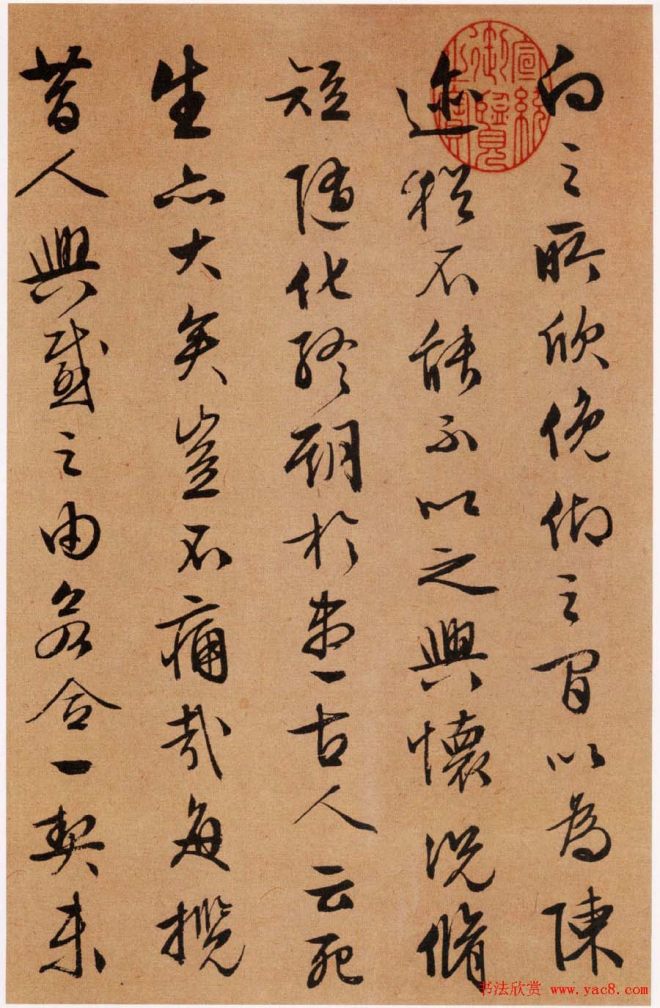 向之所欣俛仰之間以為陳
迹猶不能不以之興懷況脩
短隨化終期於盡古人云死
生亦大矣豈不痛哉每攬
昔人興感之由若合一契未
宣統
御覽
之寶
书法欣赏 www.yac8.com